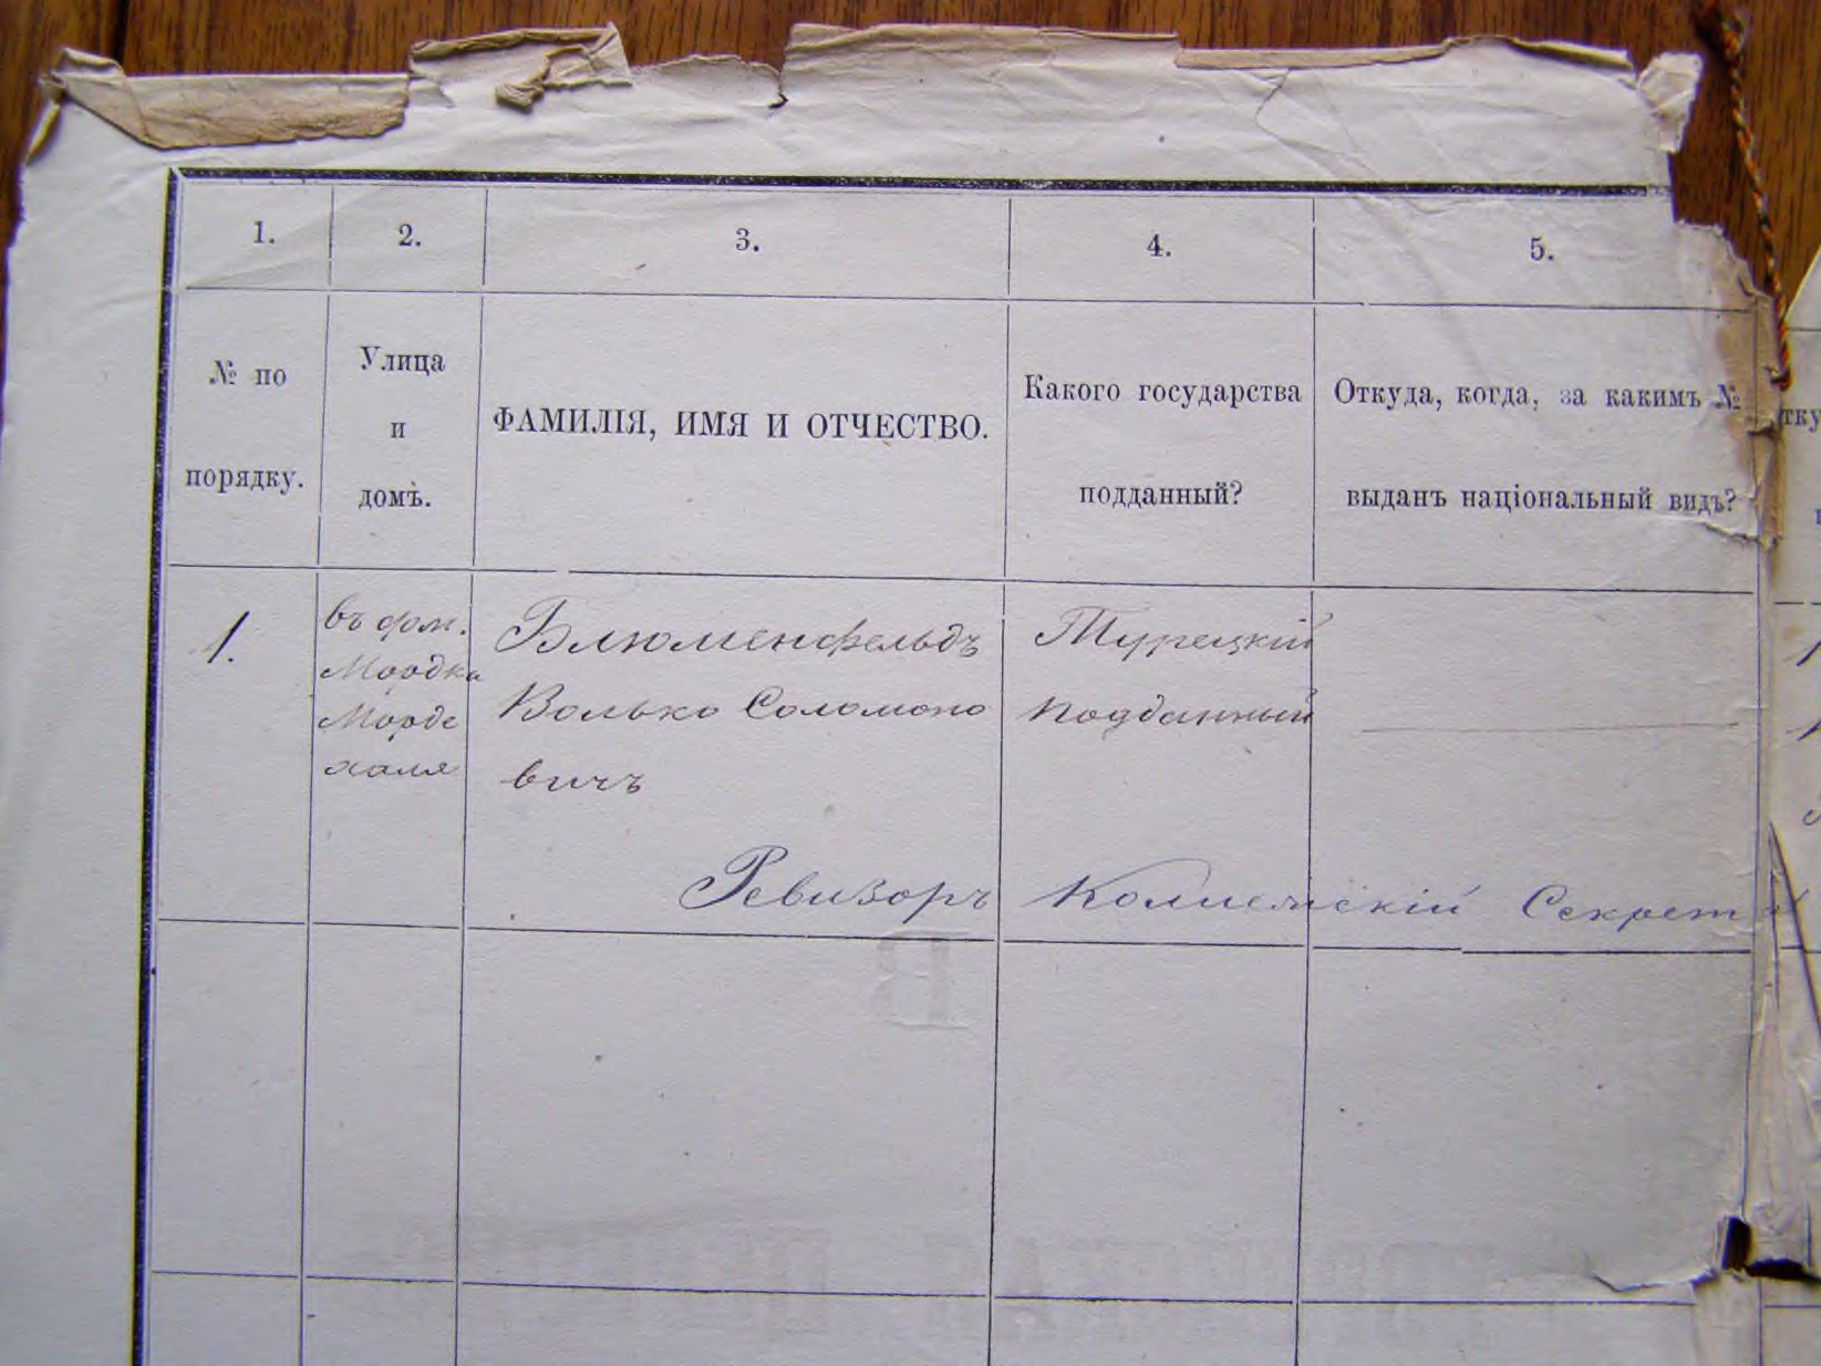 1.
2.
3.
4.
5.
№ по
порядку.
Улица
и
домъ.
ФАМИЛІЯ, ИМЯ И ОТЧЕСТВО.
Какого государства
подданный?
Откуда, когда, за какимъ №
выданъ національный видъ?
1.
въ дом.
Мордка
Морде
халя
Блюменфельдъ
Волько Соломоно
вичъ
Турецкій
подданный
Ревизоръ Коллежскій Секрет